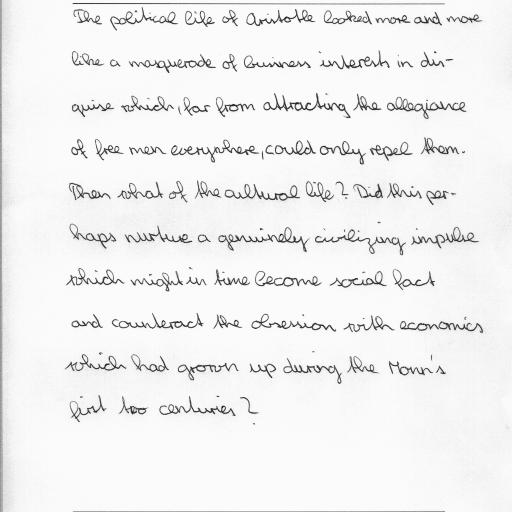 The political life of Aristotle looked more and more
like a masquerade of business interests in dis-
guise which, far from attracting the allegiance
of free men everywhere, could only repel them.
Then what of the cultural life? Did this per-
haps nurture a genuinely civilizing impulse
which might in time become social fact
and counteract the obsession with economics
which had grown up during the Mann's
first two centuries?